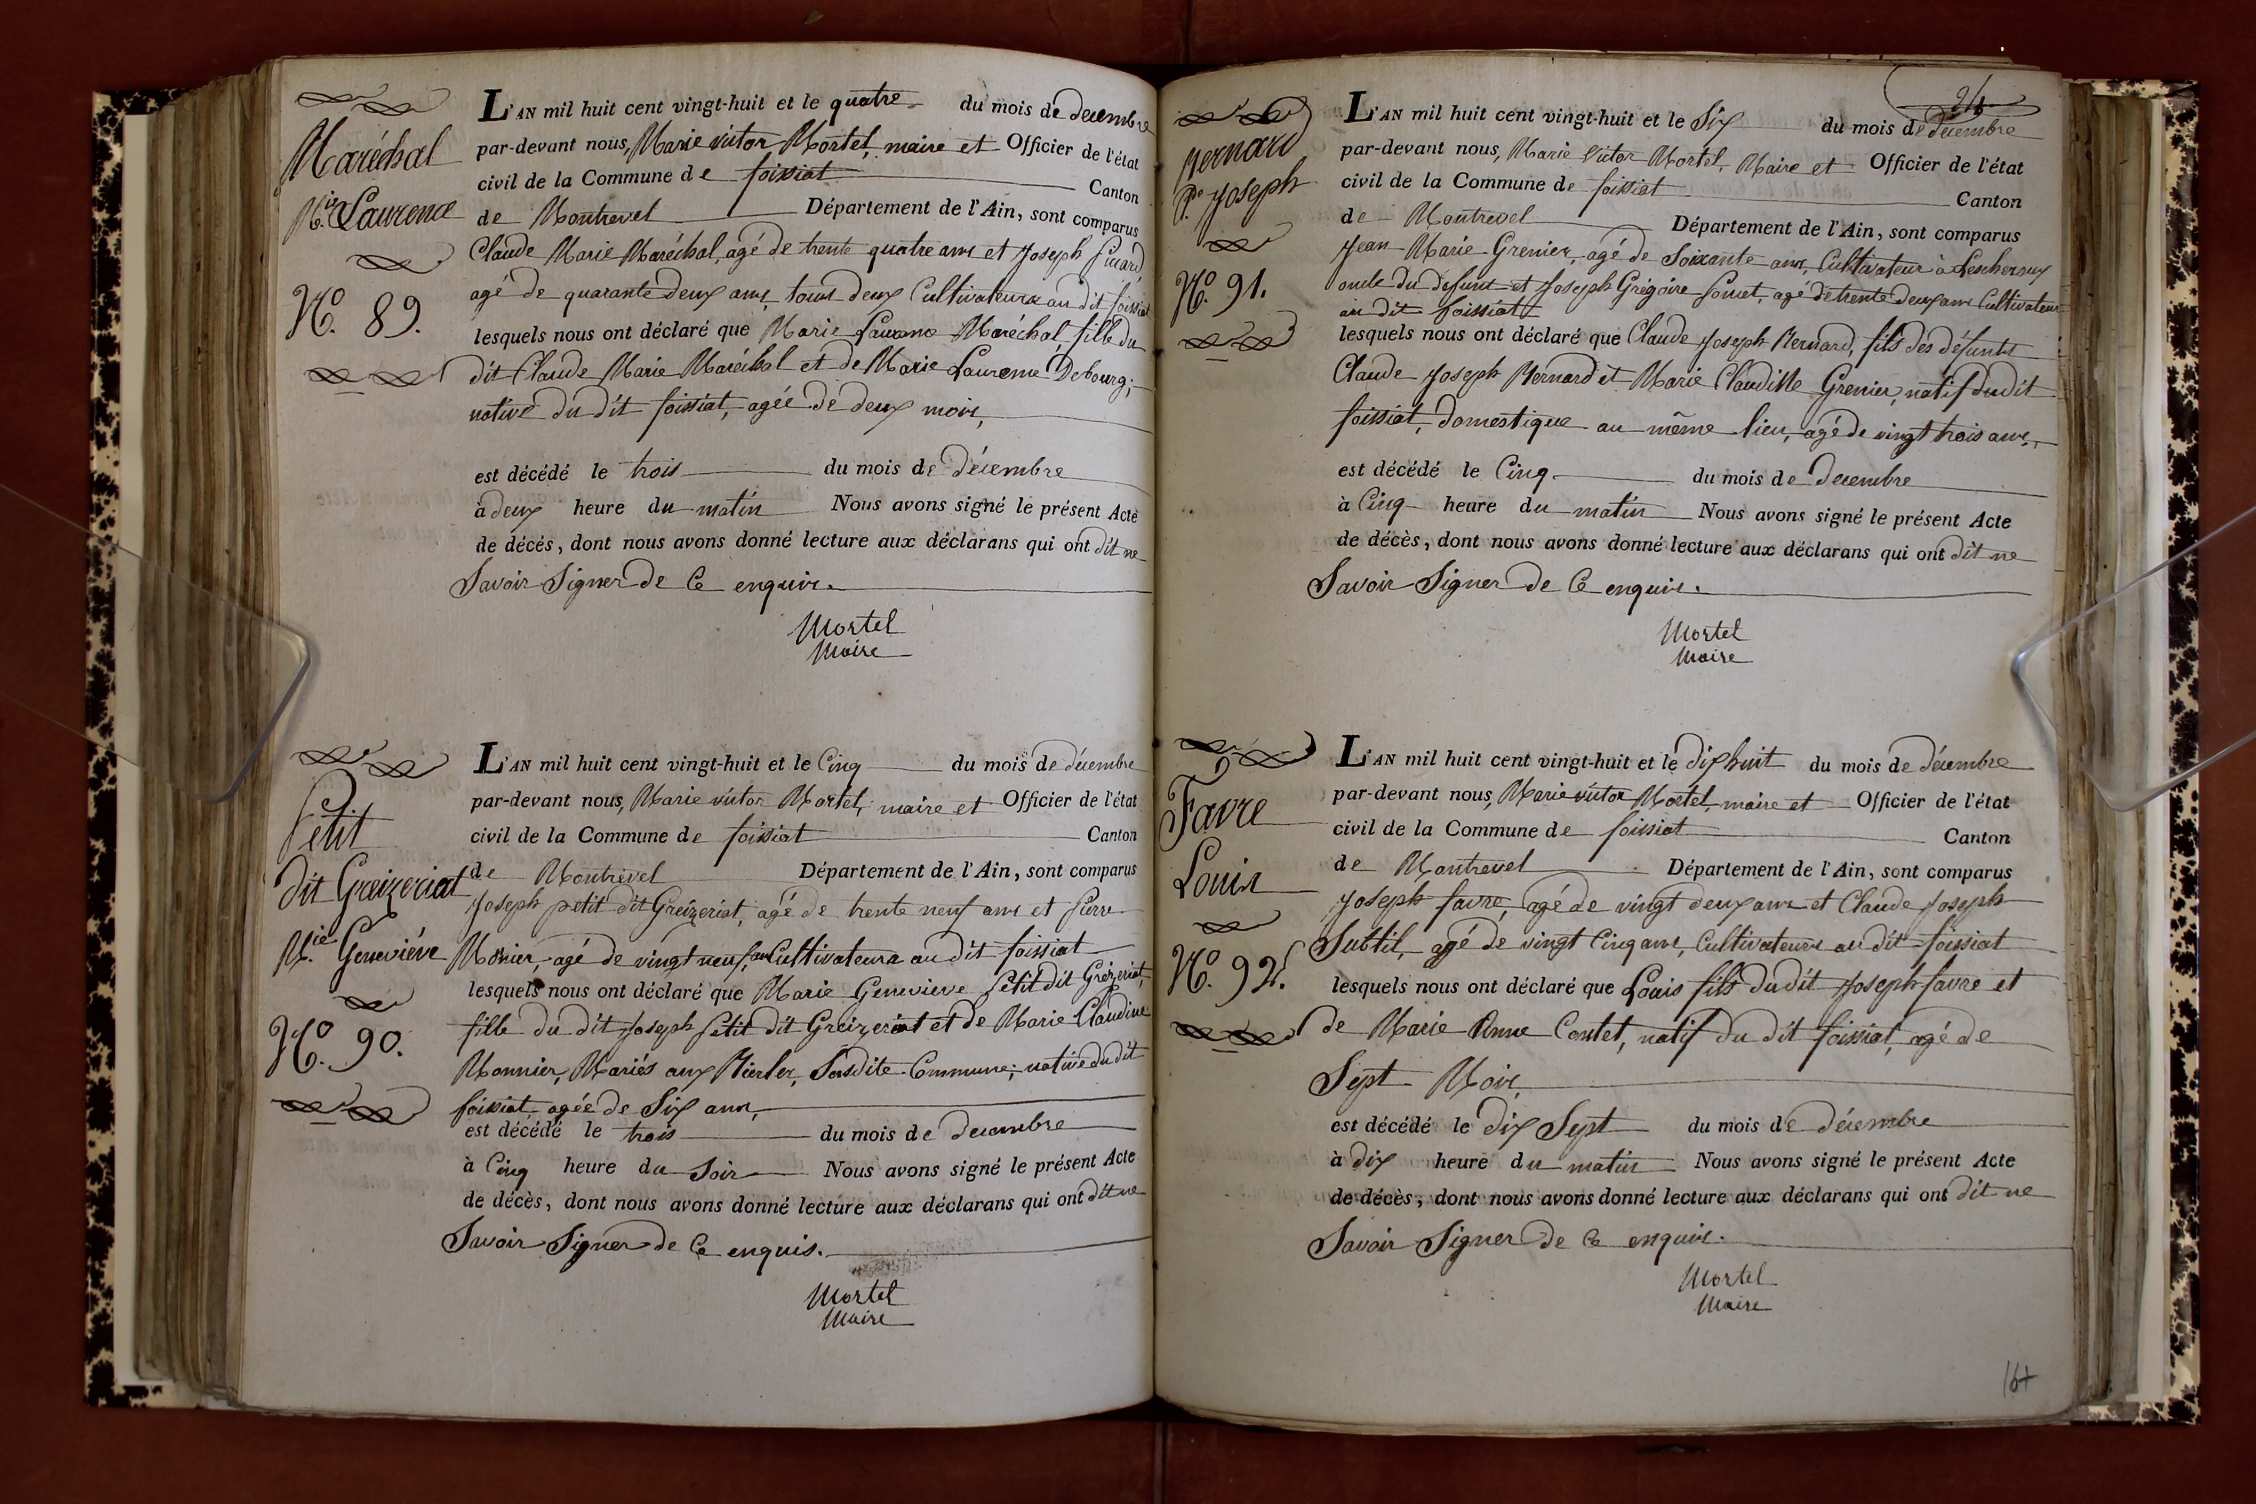 Maréchal
M.ie Laurence
N.o 89.
L'AN mil huit cent vingt-huit et le quatre du mois de decembre
par-devant nous, Marie victor Mortel, maire et Officier de l'état
civil de la Commune de foissiat Canton
de Montrevel Département de l'Ain, sont comparus
Claude Marie Maréchal, agé de trente quatre ans et Joseph Picard,
agé de quarante deux ans, tous deux Cultivateurs au dit foissiat
lesquels nous ont déclaré que Marie Laurence Maréchal, fille du
dit Claude Marie Maréchal et de Marie Laurence Debourg;
native du dit foissiat, agée de deux mois,
est décédé le trois du mois de décembre
à deux heure du matin Nous avons signé le présent Acte
de décès, dont nous avons donné lecture aux déclarans qui ont dit ne
Savoir Signer de Ce enquis.
Mortel
Maire
Petit
dit Greizeriat
M.ie Geneviéve
N.o 90.
L'AN mil huit cent vingt-huit et le Cinq du mois de décembre
par-devant nous, Marie victor Mortel, maire et Officier de l'état
civil de la Commune de foissiat Canton
de Montrevel Département de l'Ain, sont comparus
Joseph petit dit Greizeriat, agé de trente neuf ans et Pierre
Monier, agé de vingt neuf ans Cultivateurs au dit foissiat
lesquels nous ont déclaré que Marie Genevieve Petit dit Grézeriat,
fille du dit Joseph Petit dit Greizeriat et de Marie Claudine
Monnier, Mariés aux Vierles, Susdite Commune; native du dit
foissiat agée de Six ans,
est décédé le trois du mois de decembre
à Cinq heure du Soir Nous avons signé le présent Acte
de décès, dont nous avons donné lecture aux déclarans qui ont dit ne
Savoir Signer de Ce enquis.
Mortel
Maire
Bernard
Joseph
N.o 91.
L'AN mil huit cent vingt-huit et le Six du mois de décembre
par-devant nous, Marie Victor Mortel, Maire et Officier de l'état
civil de la Commune de foissiat Canton
de Montrevel Département de l'Ain, sont comparus
Jean Marie Grenier, agé de Soixante ans, Cultivateur à Lescheroux
oncle du defunt et Joseph Grégoire, agé de trente deux ans Cultivateur
au dit foissiat
lesquels nous ont déclaré que Claude Joseph Bernard, fils des défunts
Claude Joseph Bernard et Marie Claudine Grenier, natif du dit
foissiat, domestique au même lieu, agé de vingt trois ans,
est décédé le Cinq du mois de decembre
à Cinq heure du matin Nous avons signé le présent Acte
de décès, dont nous avons donné lecture aux déclarans qui ont dit ne
Savoir Signer de Ce enquis.
Mortel
Maire
Favre
Louis
N.o 92.
L'AN mil huit cent vingt-huit et le dix huit du mois de décembre
par-devant nous, Marie victor Mortel, maire et Officier de l'état
civil de la Commune de foissiat Canton
de Montrevel Département de l'Ain, sont comparus
Joseph favre, agé de vingt deux ans et Claude Joseph
Subtil, agé de vingt Cinq ans, Cultivateurs au dit foissiat
lesquels nous ont déclaré que Louis fils du dit Joseph favre et
de Marie Anne Contet, natif du dit foissiat, agé de
Sept Mois,
est décédé le dix Sept du mois de décembre
à dix heure du matin Nous avons signé le présent Acte
de décès, dont nous avons donné lecture aux déclarans qui ont dit ne
Savoir Signer de Ce enquis.
Mortel
Maire